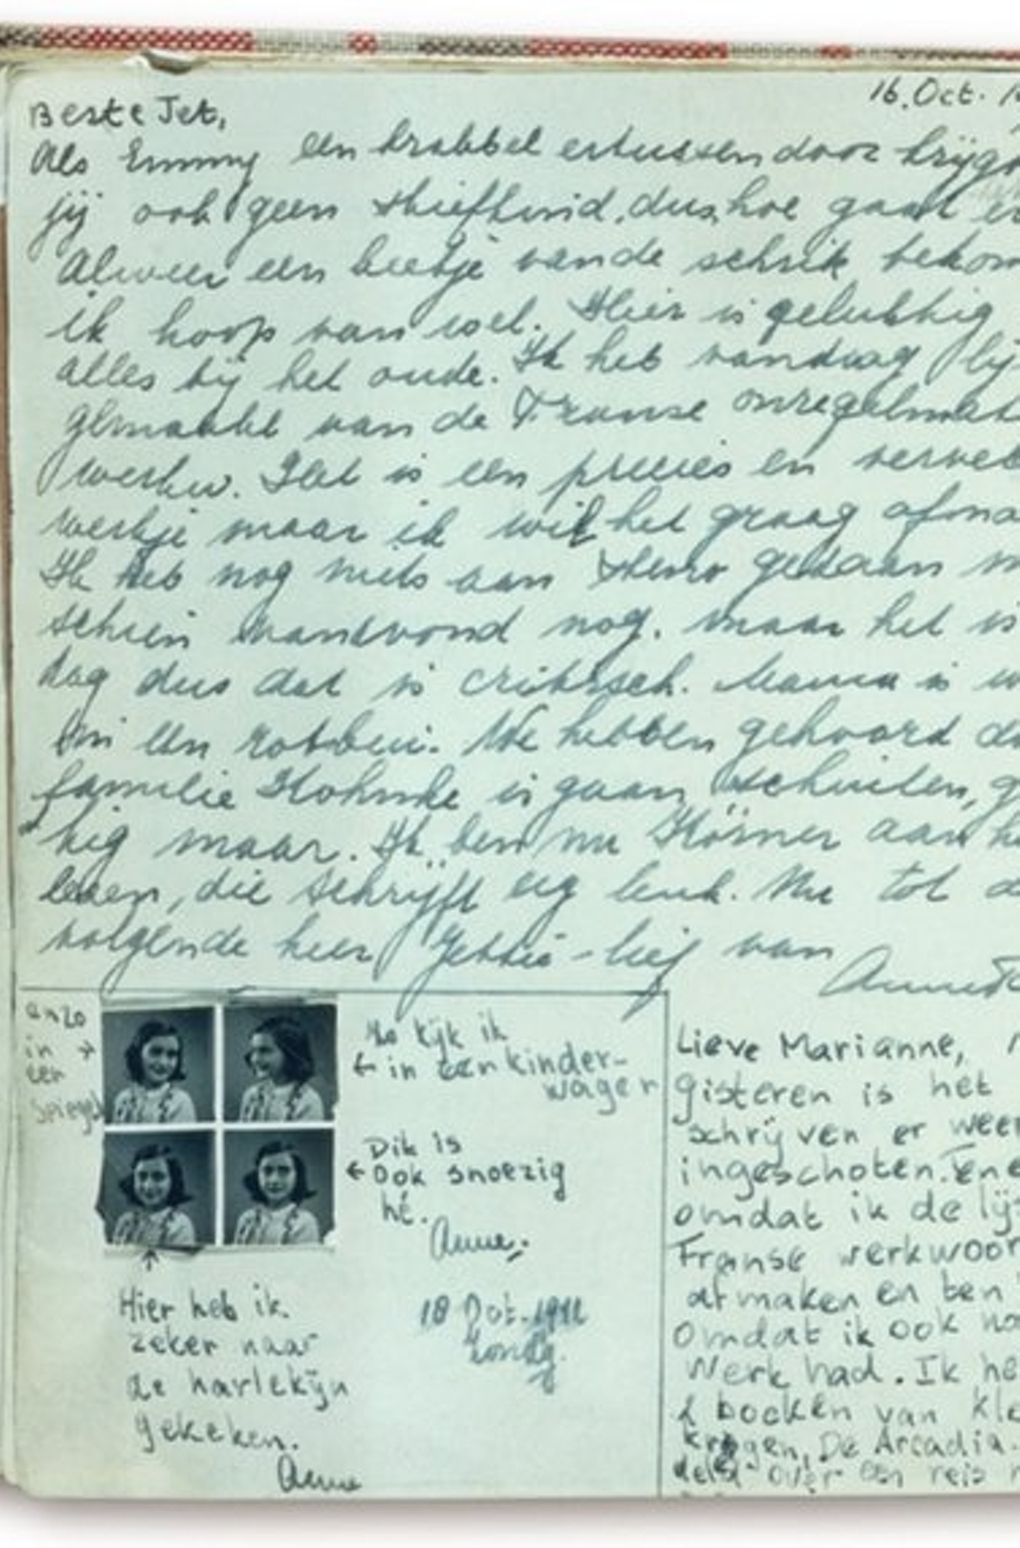 16. Oct.
Beste Jet,
Als Emmy een krabbel ertussen door krijgt
jij ook geen stiefkind, dus hoe gaat
Alweer een beetje van de schrik
ik hoop van wel. Hier is gelukkig
alles bij het oude. Ik heb vandaag
gemaakt van de Franse
werkw. Het is een precies en
werkje maar ik wil het graag
Ik heb nog niets aan Steno gedaan
schien vanavond nog. maar het is
dag dus dat is critisch. Mama is
We hebben gehoord
familie is gaan schuilen,
kig maar. Ik ben nu Körner aan
lezen, die schrijft erg leuk. Nu tot
volgende keer Jettie-lief van
Anne
enzo
in →
een
spiegel
Zo kijk ik
← in een kinder-
wagen
Dik is
← Ook snoezig
hé.
Anne.
↑
Hier heb ik
zeker naar
de harlekijn
gekeken.
Anne
18 Oct. 1942
Zondg.
Lieve Marianne,
gisteren is het
schrijven er weer
ingeschoten.
omdat ik de
Franse
af maken en ten
Omdat ik ook
Werk had. Ik
2 boeken van
De Arcadia.
over een reis